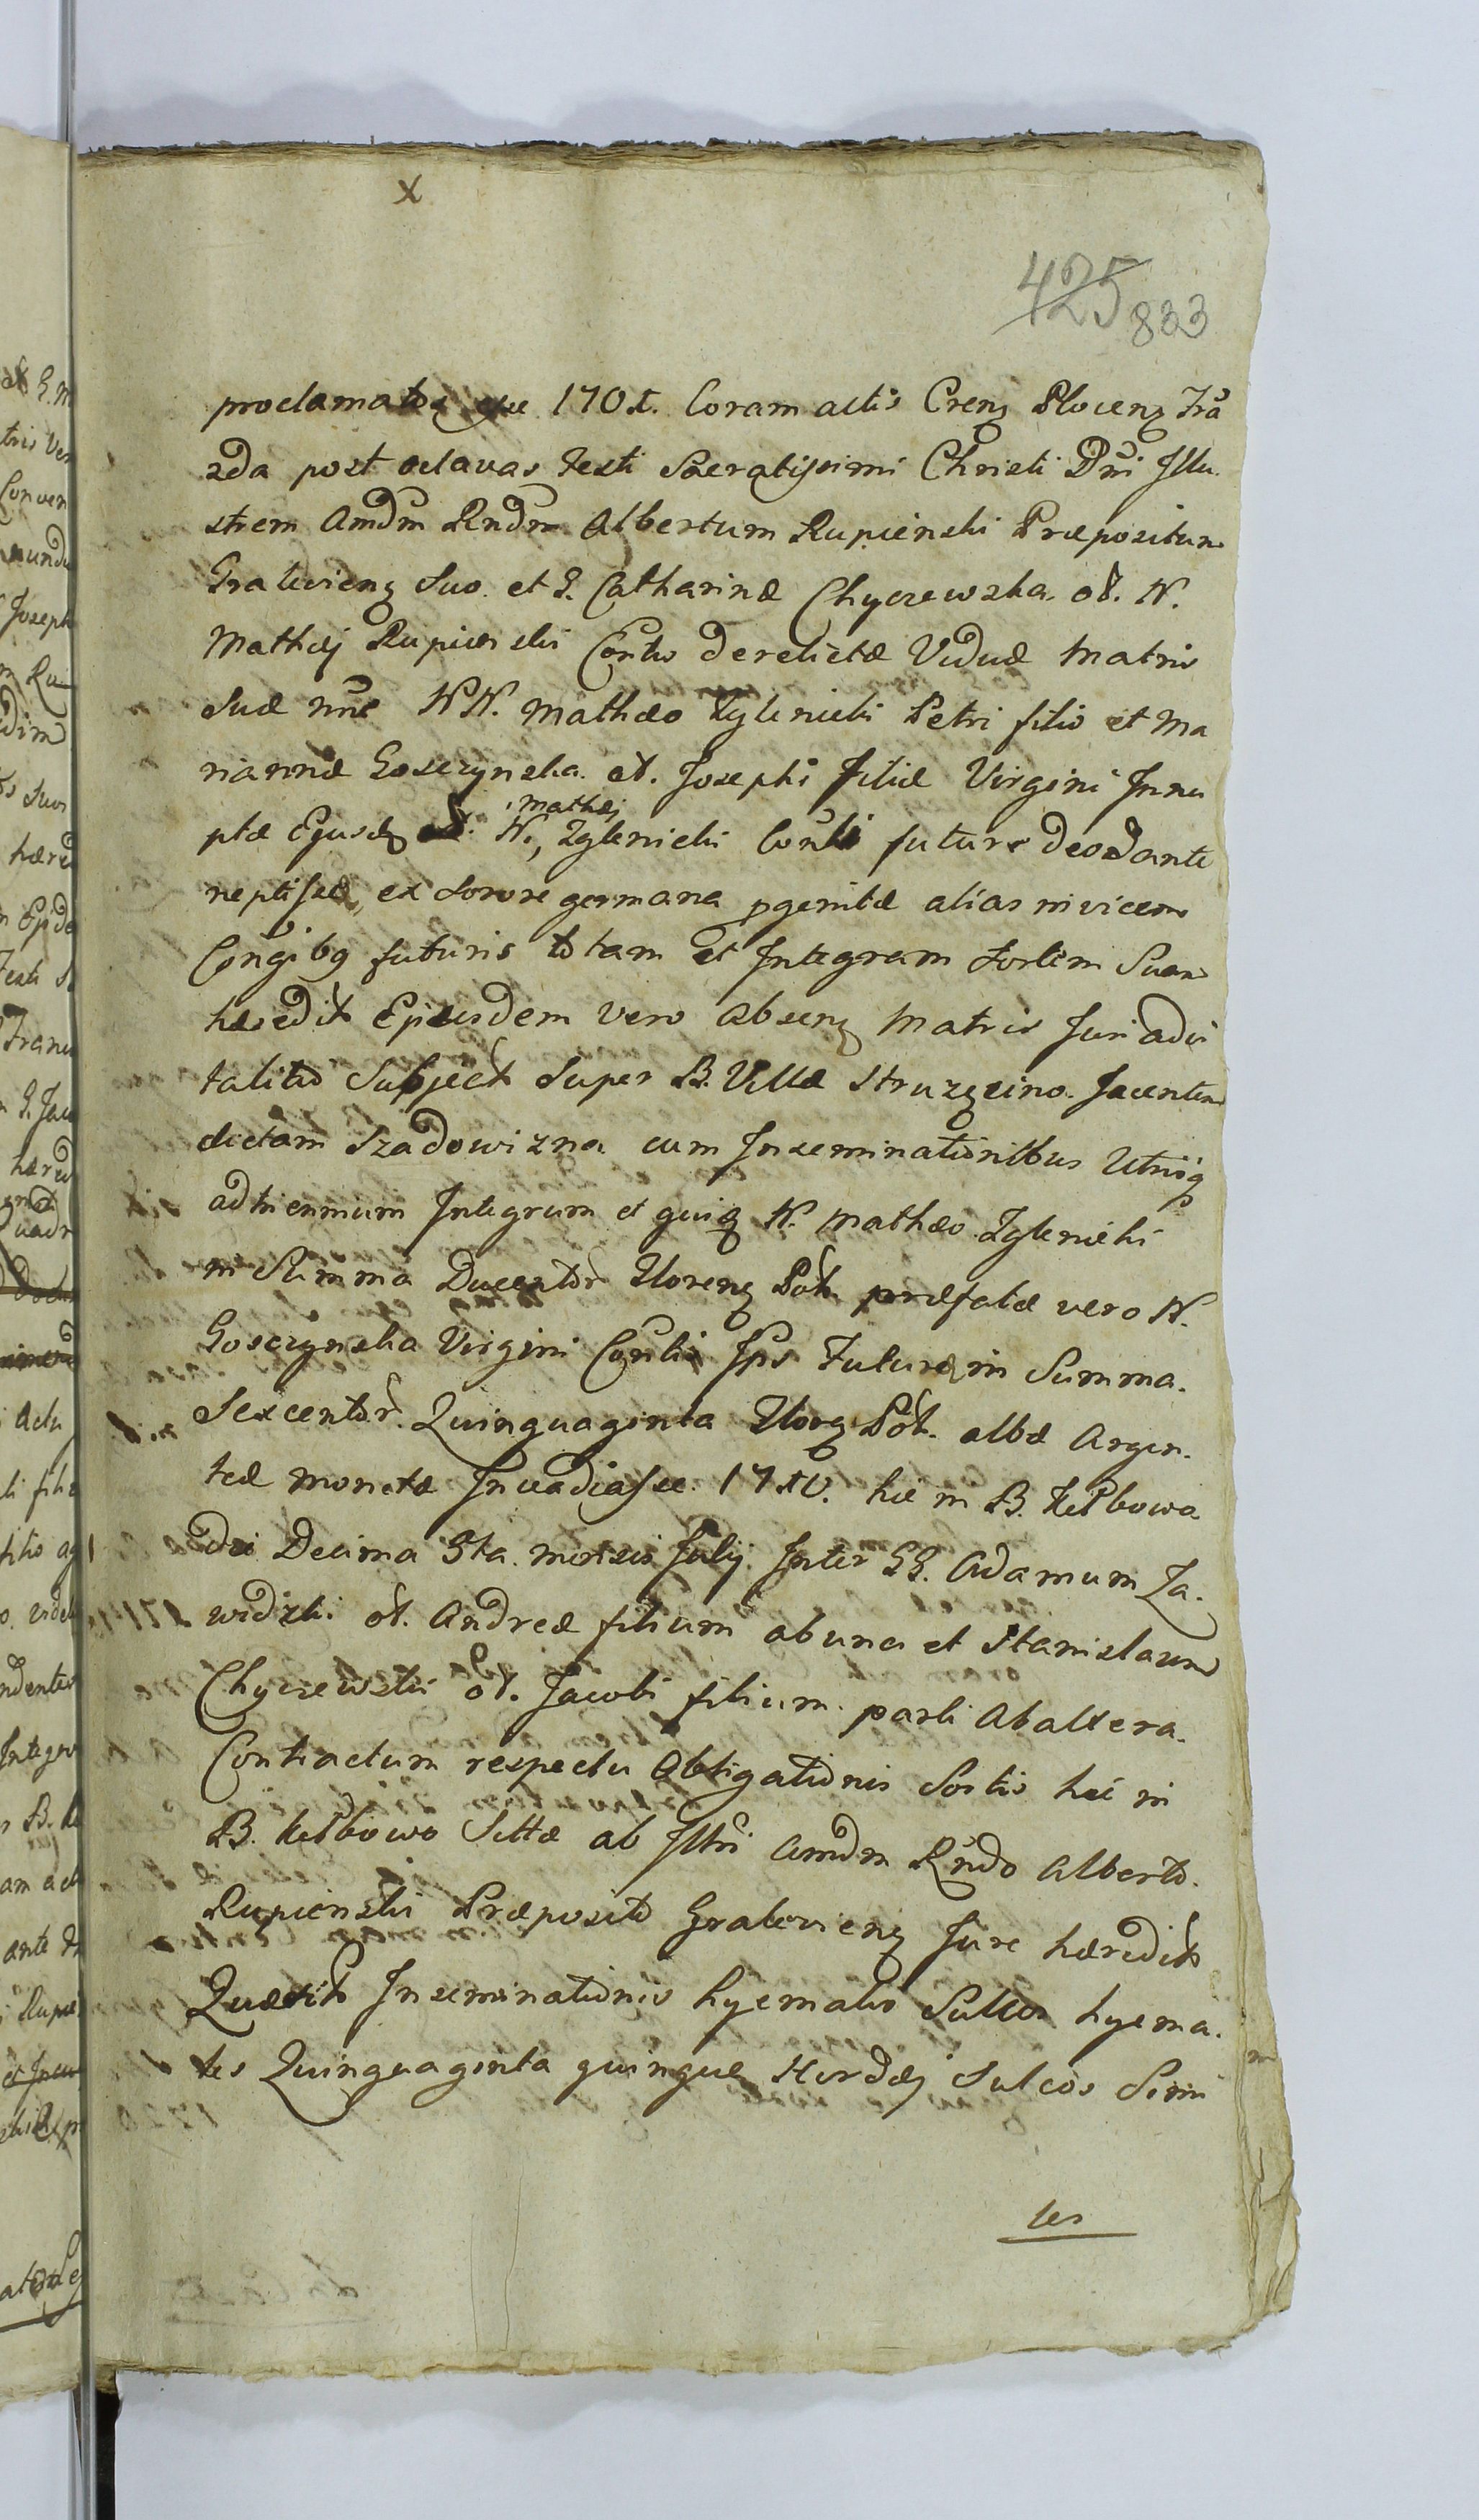 x
425 833
proclamatos esse 170 t. Coram actis Crenz Plocenz Fra
2da post octavas Festi Sacratissimi Christi Dni Illu
strem Amdm Rndm Albertum Rupienski Præpositum
Gralevienz Suo. et G. Catharinæ Chyczewska. ol. N.
Mathæj Rupienski Contis derelictæ Viduæ Matris
Suæ nne NN. Mathæo Zglenicki Petri filio et Ma
riannæ Goszczynska. ol. Josephi filiæ Virgini Innu
ptæ Ejusdz N. Mathæj Zglenicki Conti futuræ deo dante
nepti suæ, ex Sorore germana pgenitæ alias invicem
Congibg futuris totam et Integram Sortem Suam
hæredit Ejusdem vero absenz Matris Juri advi
talitio Subject Super B. Villæ Struzęcino. Jacentem
dictam Szadowizna cum Inseminationibus Utrisq
ad triennium Integrum et quiq N. Mathæo Zglenicki
in Summa Ducentor Florenz Pol. præfatæ vero N.
Goszczynska Virgini Conti Ips Futuræ in Summa.
Sexcentor. Quinquaginta Florz Pol. albæ Argen.
teæ Monetæ Invadiasse. 17 tu. hic in B. Kełbowo
die Decima 3ta. mensis Julij Inter GG. Adamum Za.
widzki ol. Andreæ filium ab una et Stanislaum
Chyczewski ol. Jacobi filium parti ab altera.
Contractum respectu Obligationis Sortis hic in
B. Kełbowo Sittæ ab Illri Amdm Rndo Alberto.
Rupienski Præposito Gralevienz Jure hæredit
Quæsit Inseminationis hyemalis Sulcos hyema.
les Quinquaginta quinque Hordej Sulcos Simi
les